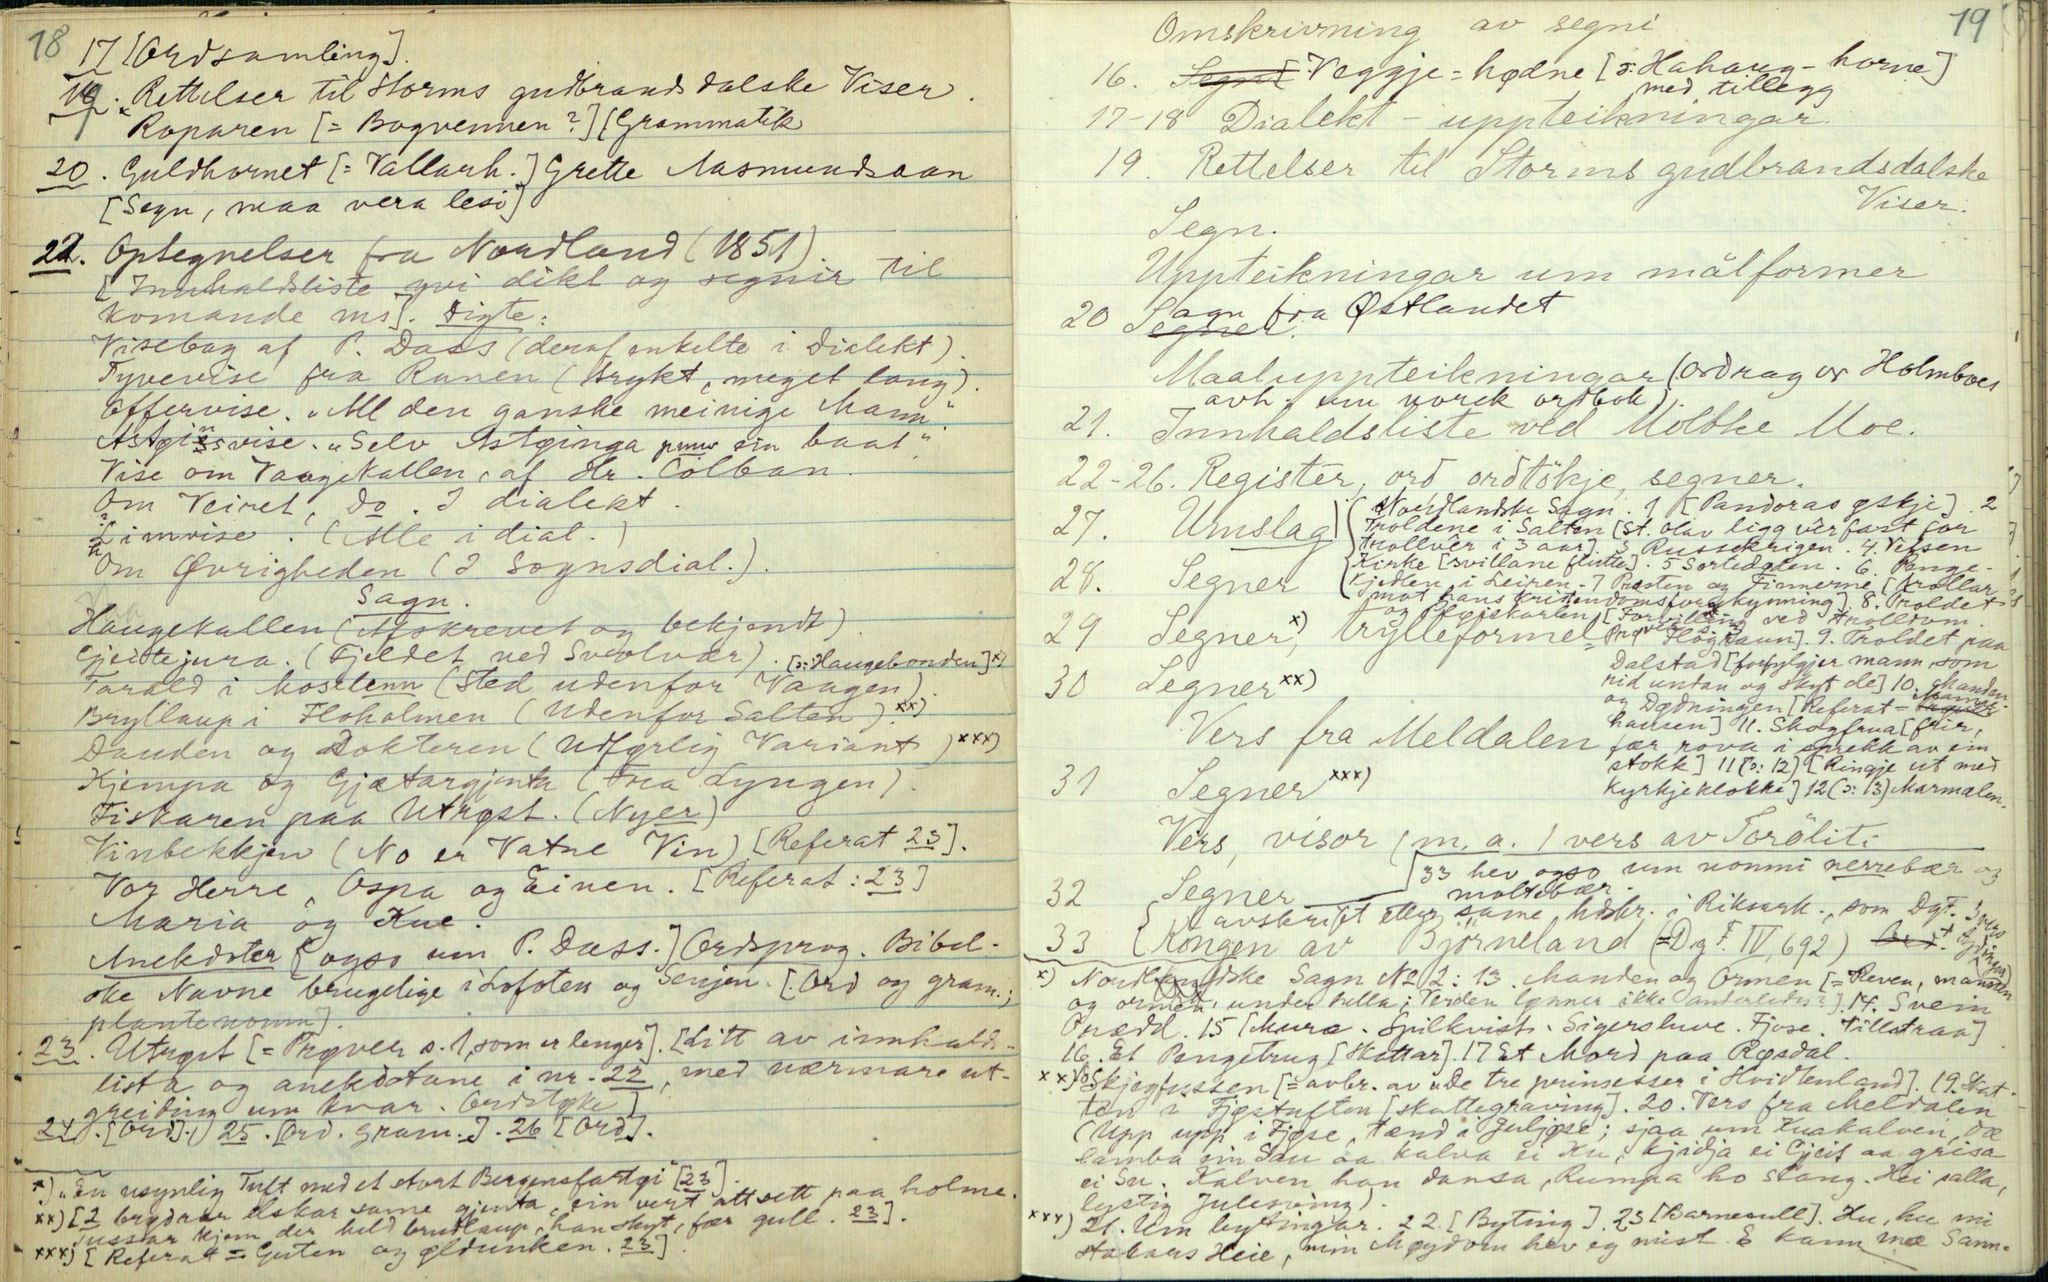 18
17 [Ordsamling].
19. Rettelser til Storms gudbrandsdalske Viser.
Roparen [= Bogvennen?] [Grammatik
20. Guldhornet [= Vallarh.] Grette Aasmundsaan
[Segn, maa vera lesi]
22. Optegnelser fra Nordland (1851).
[Innhaldsliste yvi dikt og segnir til
komande ms]. Digte:
Visebog af P. Dass (deraf enkelte i dialekt).
Tyvevise fra Ranen (Brykt, meget lang).
Offervise. "Al den ganske meinige Mann"
Astginsvise. "Selv Astginga ein baat"
Vise om Vaagekallen, af Hr. Colban.
Om Veiret, Do. I dialekt.
Limvise. (Alle i dial.)
Om Øvrigheden (I Sognsdial.).
Sagn.
Haugekallen (Afskrevet og bekjendt).
Gjeitejura. (Fjeldet ved Svolvær). [ɔ: Haugebonden] x)
Tarald i Mostenn (Sted udenfor Vaagen).
Bryllaup i Floholmen (Udenfor Salten). xx)
Dauden og Dokteren (Udførlig Variant) xxx)
Kjempa og Gjætargjenta (Fra Lyngen).
Fiskaren paa Utrøst. (Nyer)
Vinbekkjen (No er Vatne Vin) [Referat 23].
Vor Herre, Ospa og Einen. [Referat: 23]
Maria og Kue.
Anekdoter [ogso um P. Dass.] Ordsprog. Bibel-
ske Navne brugelige i Lofoten og Senjen. [Ord og gram.;
plantenomn].
23. Utrøst [= Prøver s. 1, som er lenger]. [Litt av innhalds-
lista og anekdotane i nr. 22, med nærmare ut-
greiding um kvar. Ordstøke]
24. [Ord]. 25. [Ord. Gram.]. 26 [Ord].
x) "En usynlig Tuft med et stort Bergensfartøi" [23].
xx) [2 brødrar elskar same gjenta, ein vert attsett paa holme.
Tussar kjem der held brudlaup, han skyt, fær gull. 23].
xxx) [Referat = Guten og øldunken. 23].
19
Omskrivning av segni
16. Veggje = hødne [ɔ: Hahaug-horne]
med tillegg
17-18 Dialekt-uppteikningar.
19. Rettelser til Storms gudbrandsdalske
Viser.
Segn.
Uppteikningar um målformer
20 Sagn fra Østlandet
Maaluppteikningar (Ordrag or Holmboes
avh. um norsk ordbok)
21. Innhaldsliste ved Moltke Moe.
22-26. Register, ord ordtökje, segner.
27. Umslag) Nordlandske Sagn. 1 [Pandoras øskje]. 2
Troldene i Salten [St. Olav ligg vêrfast for
trollvêr i 3 aar]. 3 Russekrigen. 4. Vefsen
28. Segner Kirke [Svillane flutte]. 5 Sortedalen. 6. Penge-
kjedlen i Leiren. 7 Præsten og Finnerne. [trollar
mot hans kristendomsforkynning]. 8. Troldet
29 Segner x), trylleformel og Pløjekarlen [Forvilling ved trolldom.
Prøver Fløgkaun]. 9. Troldet paa
30 Segner xx) Dalstad [forfylgjer mann, som
rid undan og skyt de] 10. Manden
og Dødningen [Referat =
Vers fra Meldalen hausen] 11. Skogfrua [frir,
fær rova i sprekk av ein
31 Segner xxx) stokk] 11 (ɔ: 12) [Ringje ut med
kyrkjeklokke] 12 (ɔ: 13) Marmælen.
Vers, visor (m. a.) vers av Toröliti
32 Segner [33 hev ogso um nomni nerrebær og
moltebær.
avskrift etter same hdskr. i Riksark. som DgF.
33 Kongen av Björneland (= DgF. IV, 692)
x) Nordlandske Sagn № 2: 13. Manden og Ormen [= Reven, mannen
og ormen under hella; Verden lønner ikke anderledes?]. 14. Svein
Urædd. 15 [Mura. Spilkvist. Sigersluve. Fjose. Tillstraa]
16. Et Pengetrug [Skattar]. 17 Et Mord paa Røsdal.
xx) 18 Skjegfussen [= avbr. av "de tre prinsesser i Hvidtenland]. 19. Skat-
ten i Fjøstuften [skattegraving]. 20. Vers fra Meldalen
(Upp upp i Fjøse, tænd i Juljøse; sjaa um Kuakalven, dæ
lamba ein Sau aa kalva ei Ku, kjidja ei Gjeit aa grisa
ei Su. Kalven han dansa, Rumpa ho stang. Hei salla,
lystig Julesving).
xxx) 21. Um bytingar. 22. [Byting]. 23 [Barnesull]. Hu, hu mi
stakars Heie, min Møydom hev eg mist. E kann mæ Sann-